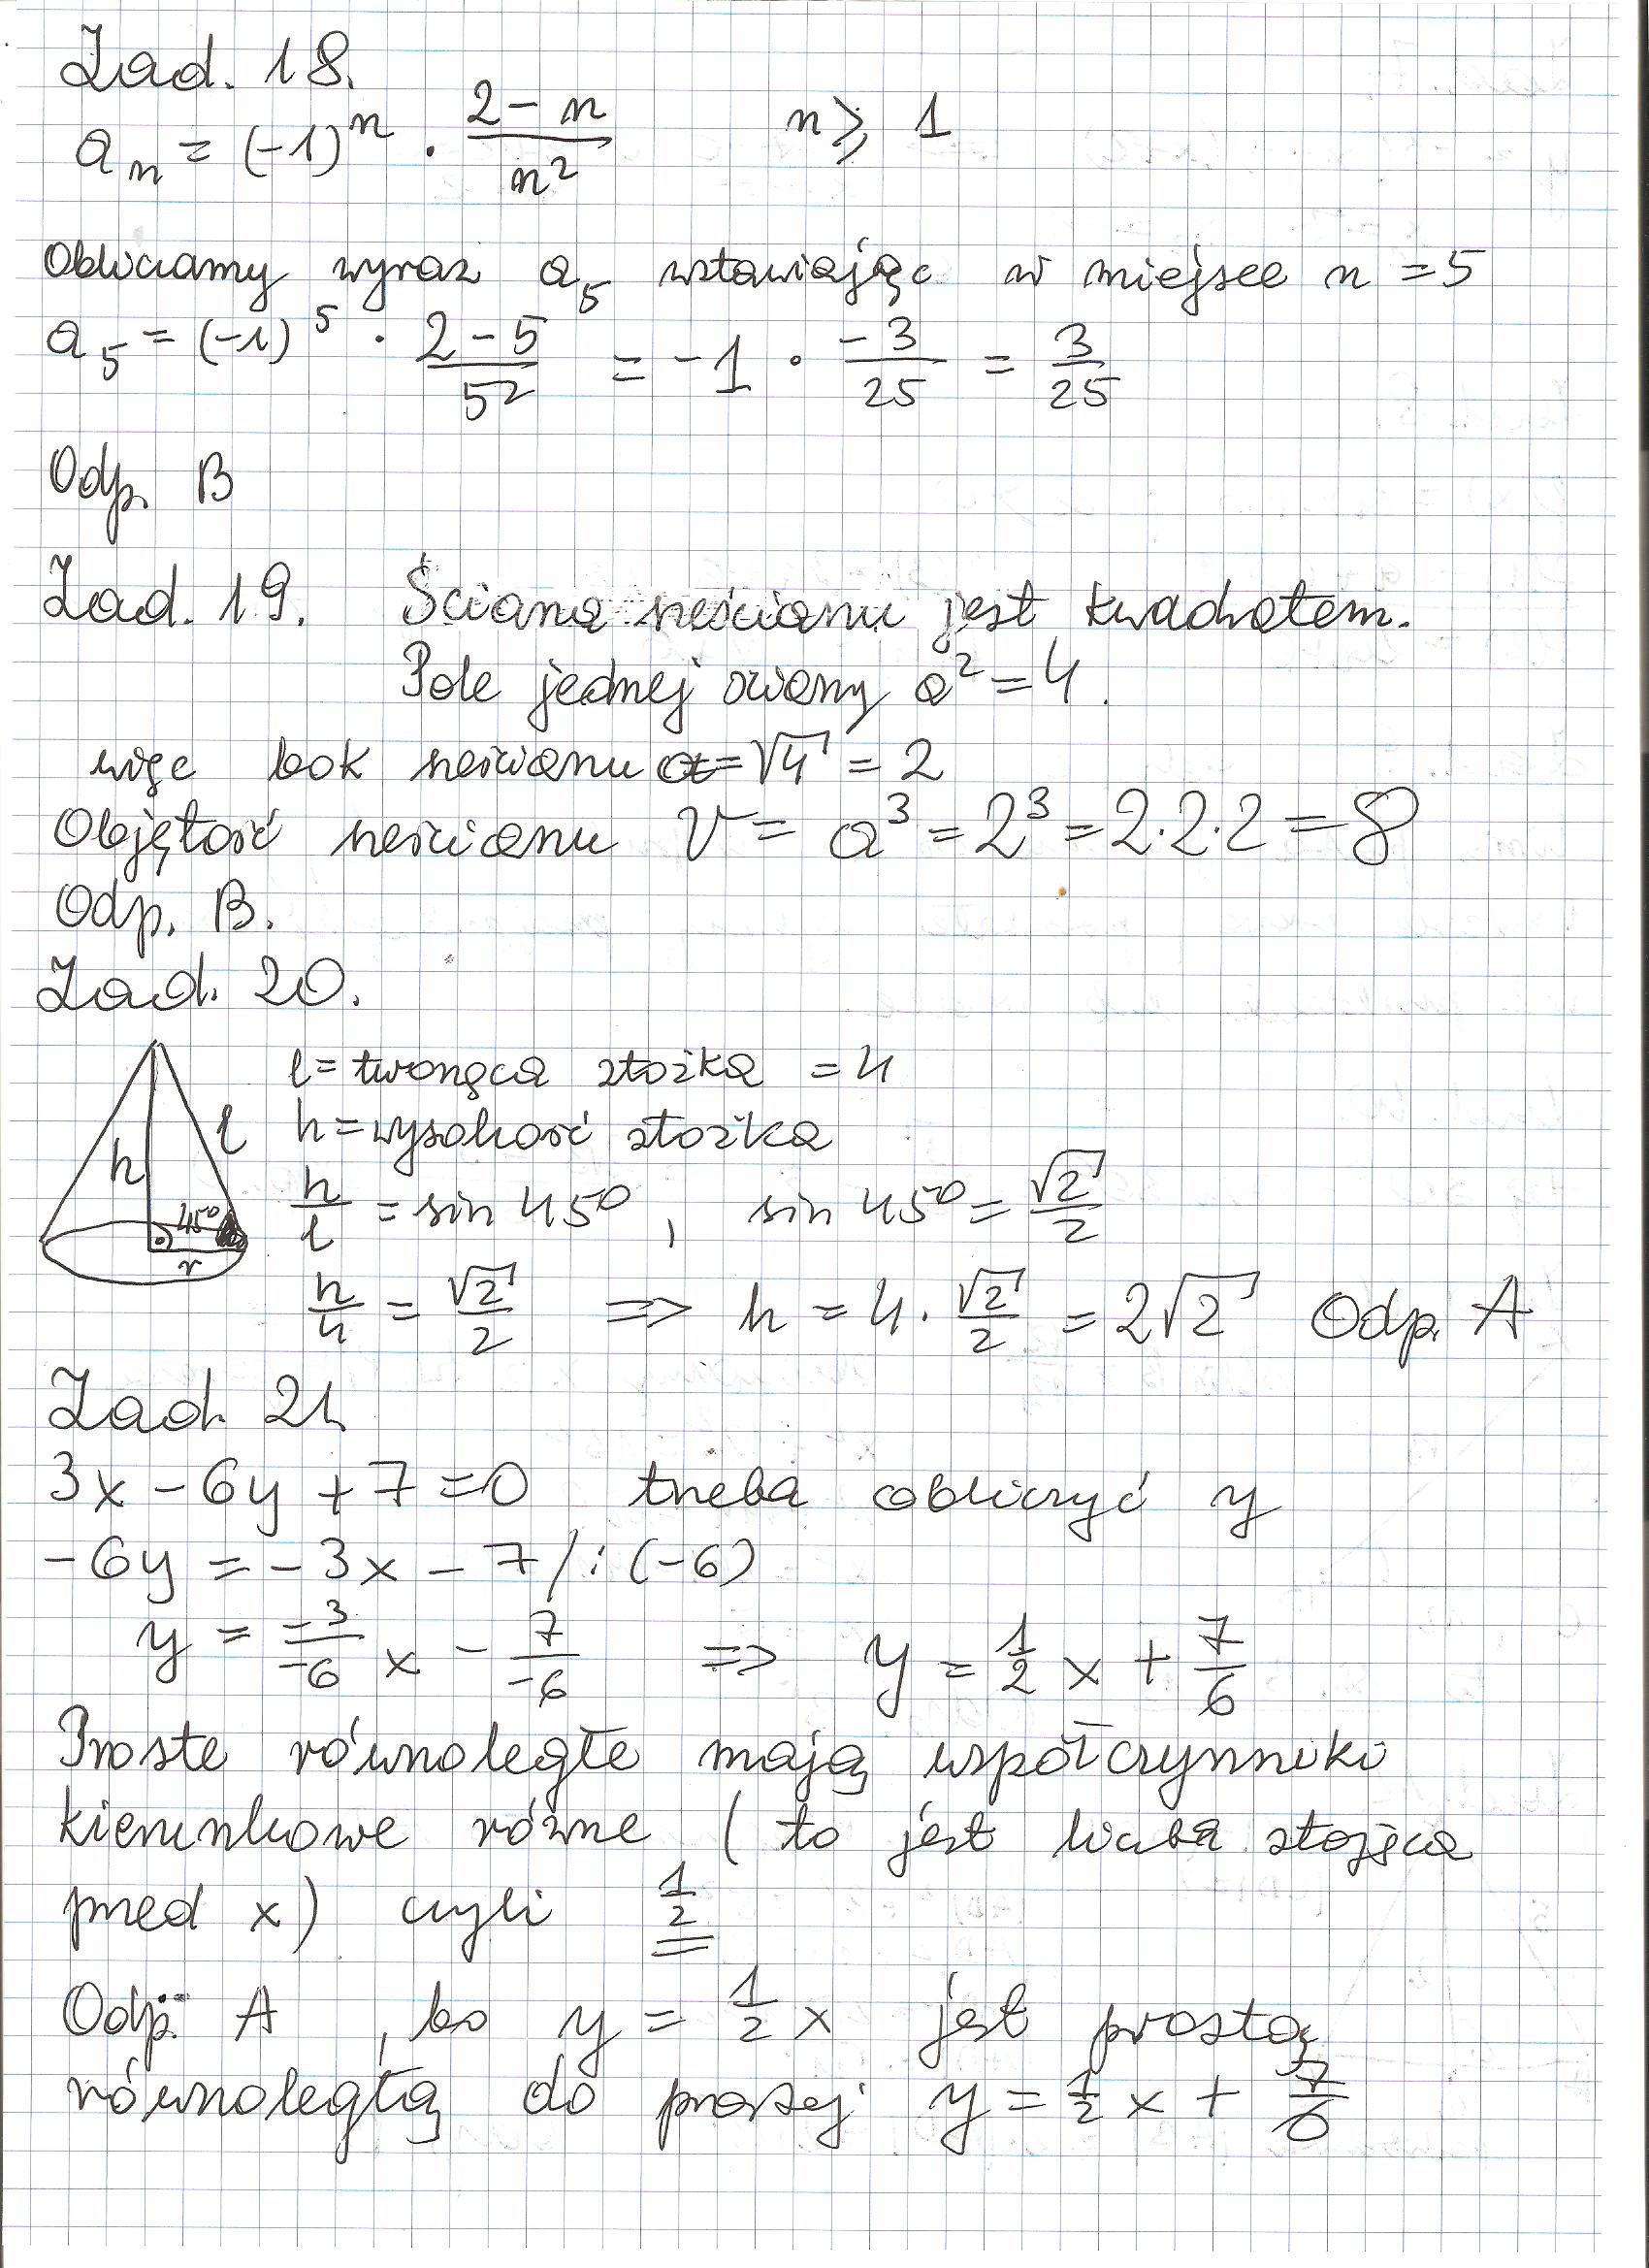 Zad. 18.
aₙ = (-1)ⁿ · (2-n)/n²    n ⩾ 1
Obliczamy wyraz a₅ wstawiając w miejsce n = 5
a₅ = (-1)⁵ · (2-5)/5² = -1 · (-3)/25 = 3/25
Odp. B
Zad. 19. Ściana sześcianu jest kwadratem.
Pole jednej ściany a² = 4.
więc bok sześcianu a = √4 = 2
Objętość sześcianu V = a³ = 2³ = 2·2·2 = 8
Odp. B.
Zad. 20.
l = tworząca stożka = 4
h = wysokość stożka
h l 45° r
h/l = sin 45°, sin 45° = √2/2
h/4 = √2/2 => h = 4 · √2/2 = 2√2 Odp. A
Zad. 21.
3x - 6y + 7 = 0 trzeba obliczyć y
-6y = -3x - 7 /:(-6)
y = (-3)/(-6) x - 7/(-6) => y = 1/2 x + 7/6
Proste równoległe mają współczynniki
kierunkowe równe (to jest liczba stojąca
przed x) czyli 1/2
Odp. A, bo y = 1/2 x jest prostą
równoległą do prosej y = 1/2 x + 7/6